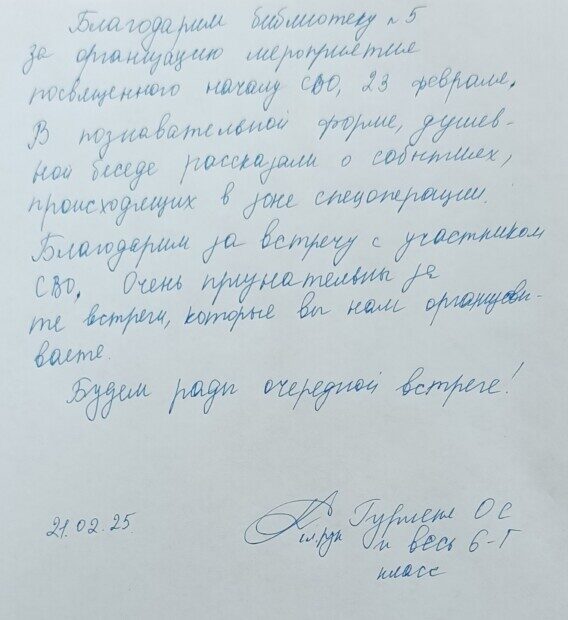 Благодарим библиотеку №5
за организацию мероприятия
посвященного началу СВО, 23 февраля.
В познавательной форме, душев-
ной беседе рассказали о событиях,
происходящих в зоне спецоперации.
Благодарим за встречу с участником
СВО. Очень признательны за
те встречи, которые вы нам организовы-
ваете.
Будем рады очередной встрече!
21.02.25.
кл.рук ОС
и весь 6-Г
класс